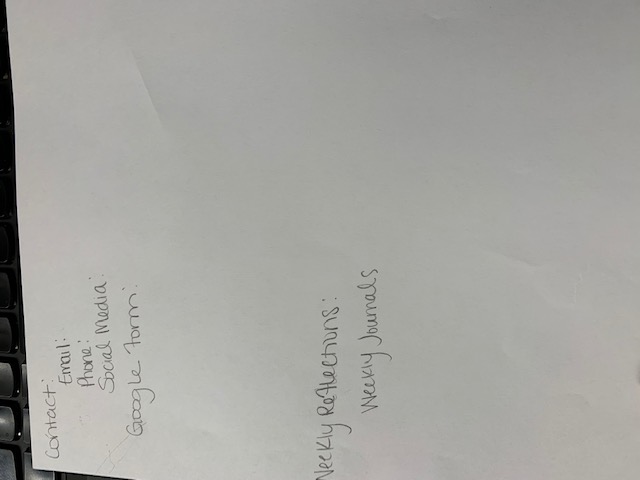 Contact:
Email:
Phone:
Social Media:
Google Form:
Weekly Reflections:
Weekly Journals